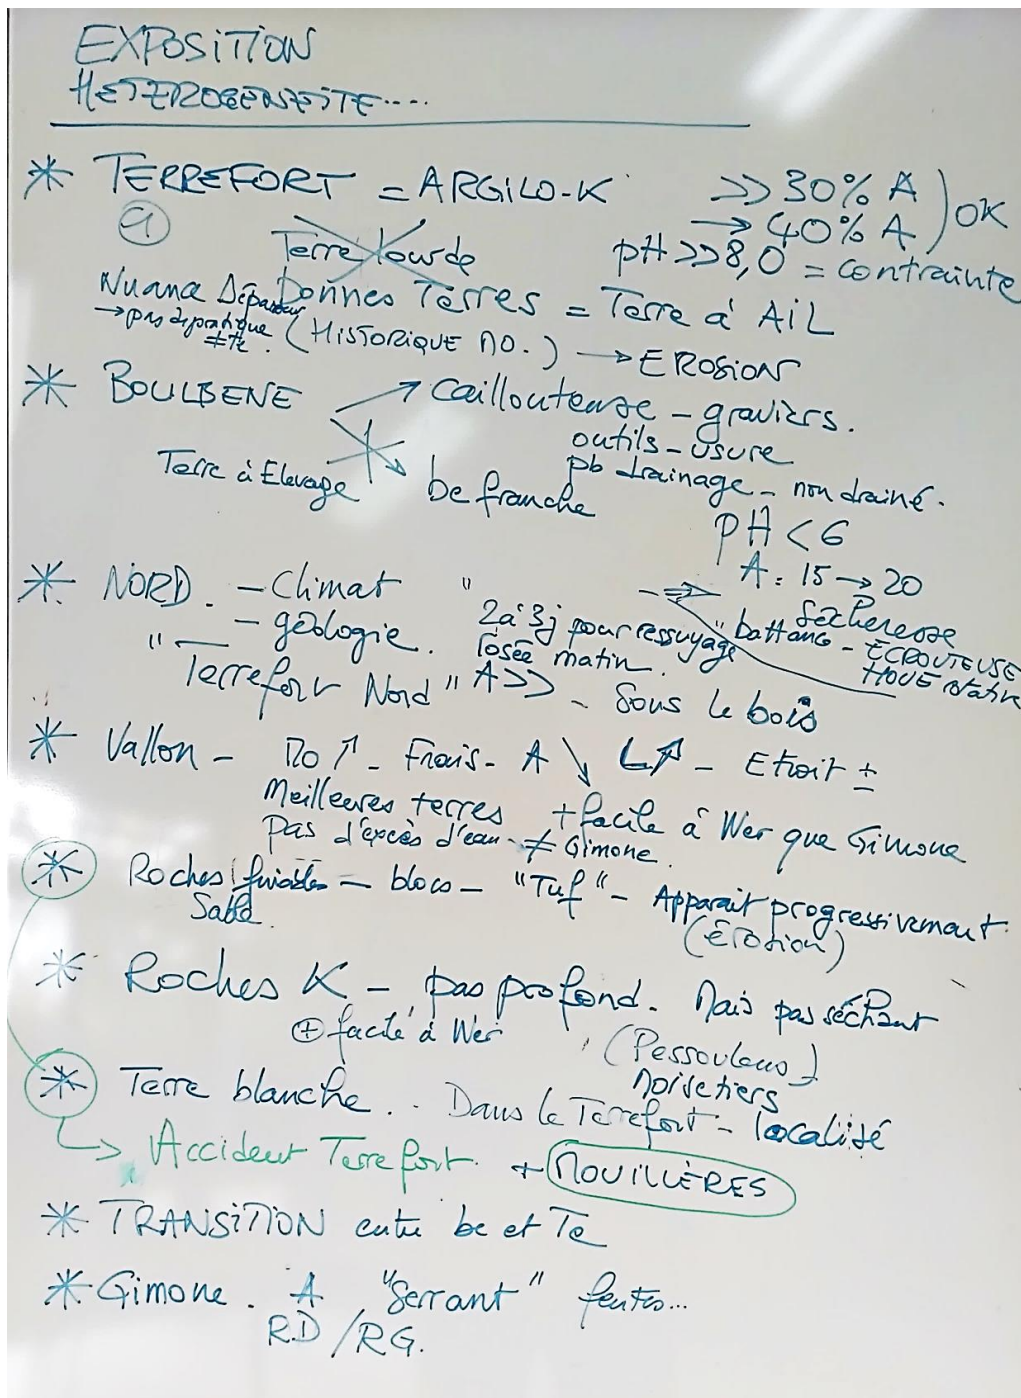 EXPOSITION
HETEROGENEITE....
* TERREFORT = ARGILO-K >> 30% A
→ 40% A ) OK
Terre lourde pH >> 8,0 = contrainte
Nuance Bonnes Terres = Terre à AIL
→ pas de pratique ≠te. (HISTORIQUE MO.) → EROSION
* BOULBENE → Caillouteuse - graviers.
outils - usure
Terre à Elevage pb drainage - non drainé.
be franche
pH < 6
A = 15 → 20
* NORD. - Climat
- géologie. "2 à 3j pour ressuyage"
rosée matin.
Sécheresse
battance - ECROUTEUSE
HOUE rotative
"Terrefort Nord" A >> - Sous le bois
* Vallon - MO ↑ - Frais - A ↘ L↗ - Etroit ±
Meilleures terres + facile à W er que Gimone
Pas d'excès d'eau - ≠ Gimone.
* Roches - blocs - "Tuf" - Apparait progressivement
Sable. (érosion)
* Roches K - pas profond. Mais pas séchant
⊕ facile à W er (Pessoulens)
noisetiers
* Terre blanche... Dans le Terrefort - localisé
↳ Accident Terrefort. + MOUILLÈRES
* TRANSITION entre be et Te
* Gimone. A "Serrant" fentes...
RD / RG.